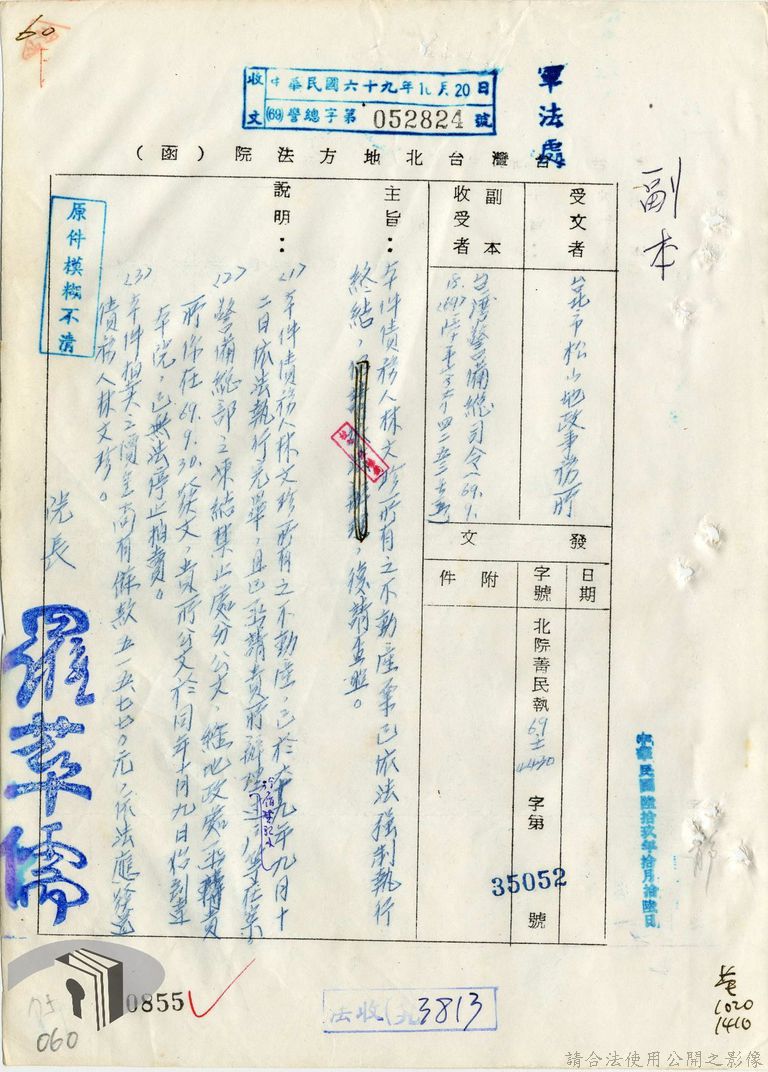 60
軍法處
收文
中華民國六十九年10月20日
(69)警總字第 052824 號
台灣台北地方法院（函）
副本
受文者
台北市松山地政事務所
副本收受者
台灣警備總司令（69.9.
發文
日期
中華民國陸拾玖年拾月拾陸日
字號
北院菁民執69
4430
字第
35052
號
附件
主旨：
本件債務人林文珍所有之不動產業已依法強制執行
終結，
復請查照。
說明：
(1)本件債務人林文珍所有之不動產，已於六十九年九月十
二日依法執行完畢，且已函請貴所辦理
在案。
(2)警備總部之凍結禁止處分公文，經地政處函轉貴
所係在69.9.30.發文，貴所公文於同年十月九日始到達
本院，已無法停止拍賣。
(3)本件拍賣之價金尚有餘款五一五七七〇元，依法應發還
債務人林文珍。
院長
羅萃儒
原件模糊不清
0855
060
法收(九)3813
1020
1410
請合法使用公開之影像